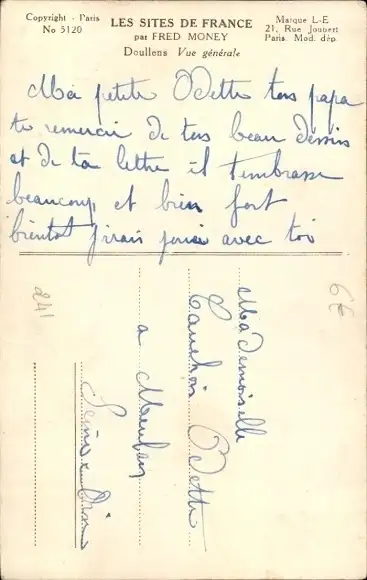 Copyright - Paris
No 5120
LES SITES DE FRANCE
par FRED MONEY
Doullens Vue générale
Marque L-E
21, Rue Joubert
Paris Mod. dép
Ma petite Odette tons papa
te remercir de tes beau dessins
et de ta lettre il t'embrasse
beaucoup et bien fort
bientot j'irais jouer avec toi
241
6€
Mademoiselle
Cauchois Odette
a Meulan
Seine & Oise